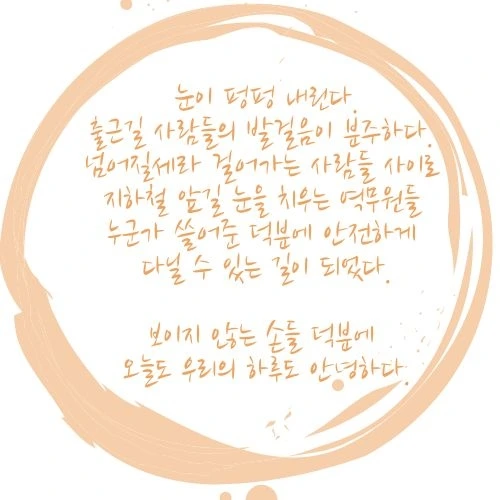 눈이 펑펑 내린다.
출근길 사람들의 발걸음이 분주하다.
넘어질세라 걸어가는 사람들 사이로
지하철 앞길 눈을 치우는 역무원들
누군가 쓸어준 덕분에 안전하게
다닐 수 있는 길이 되었다.
보이지 않는 손들 덕분에
오늘도 우리의 하루도 안녕하다.